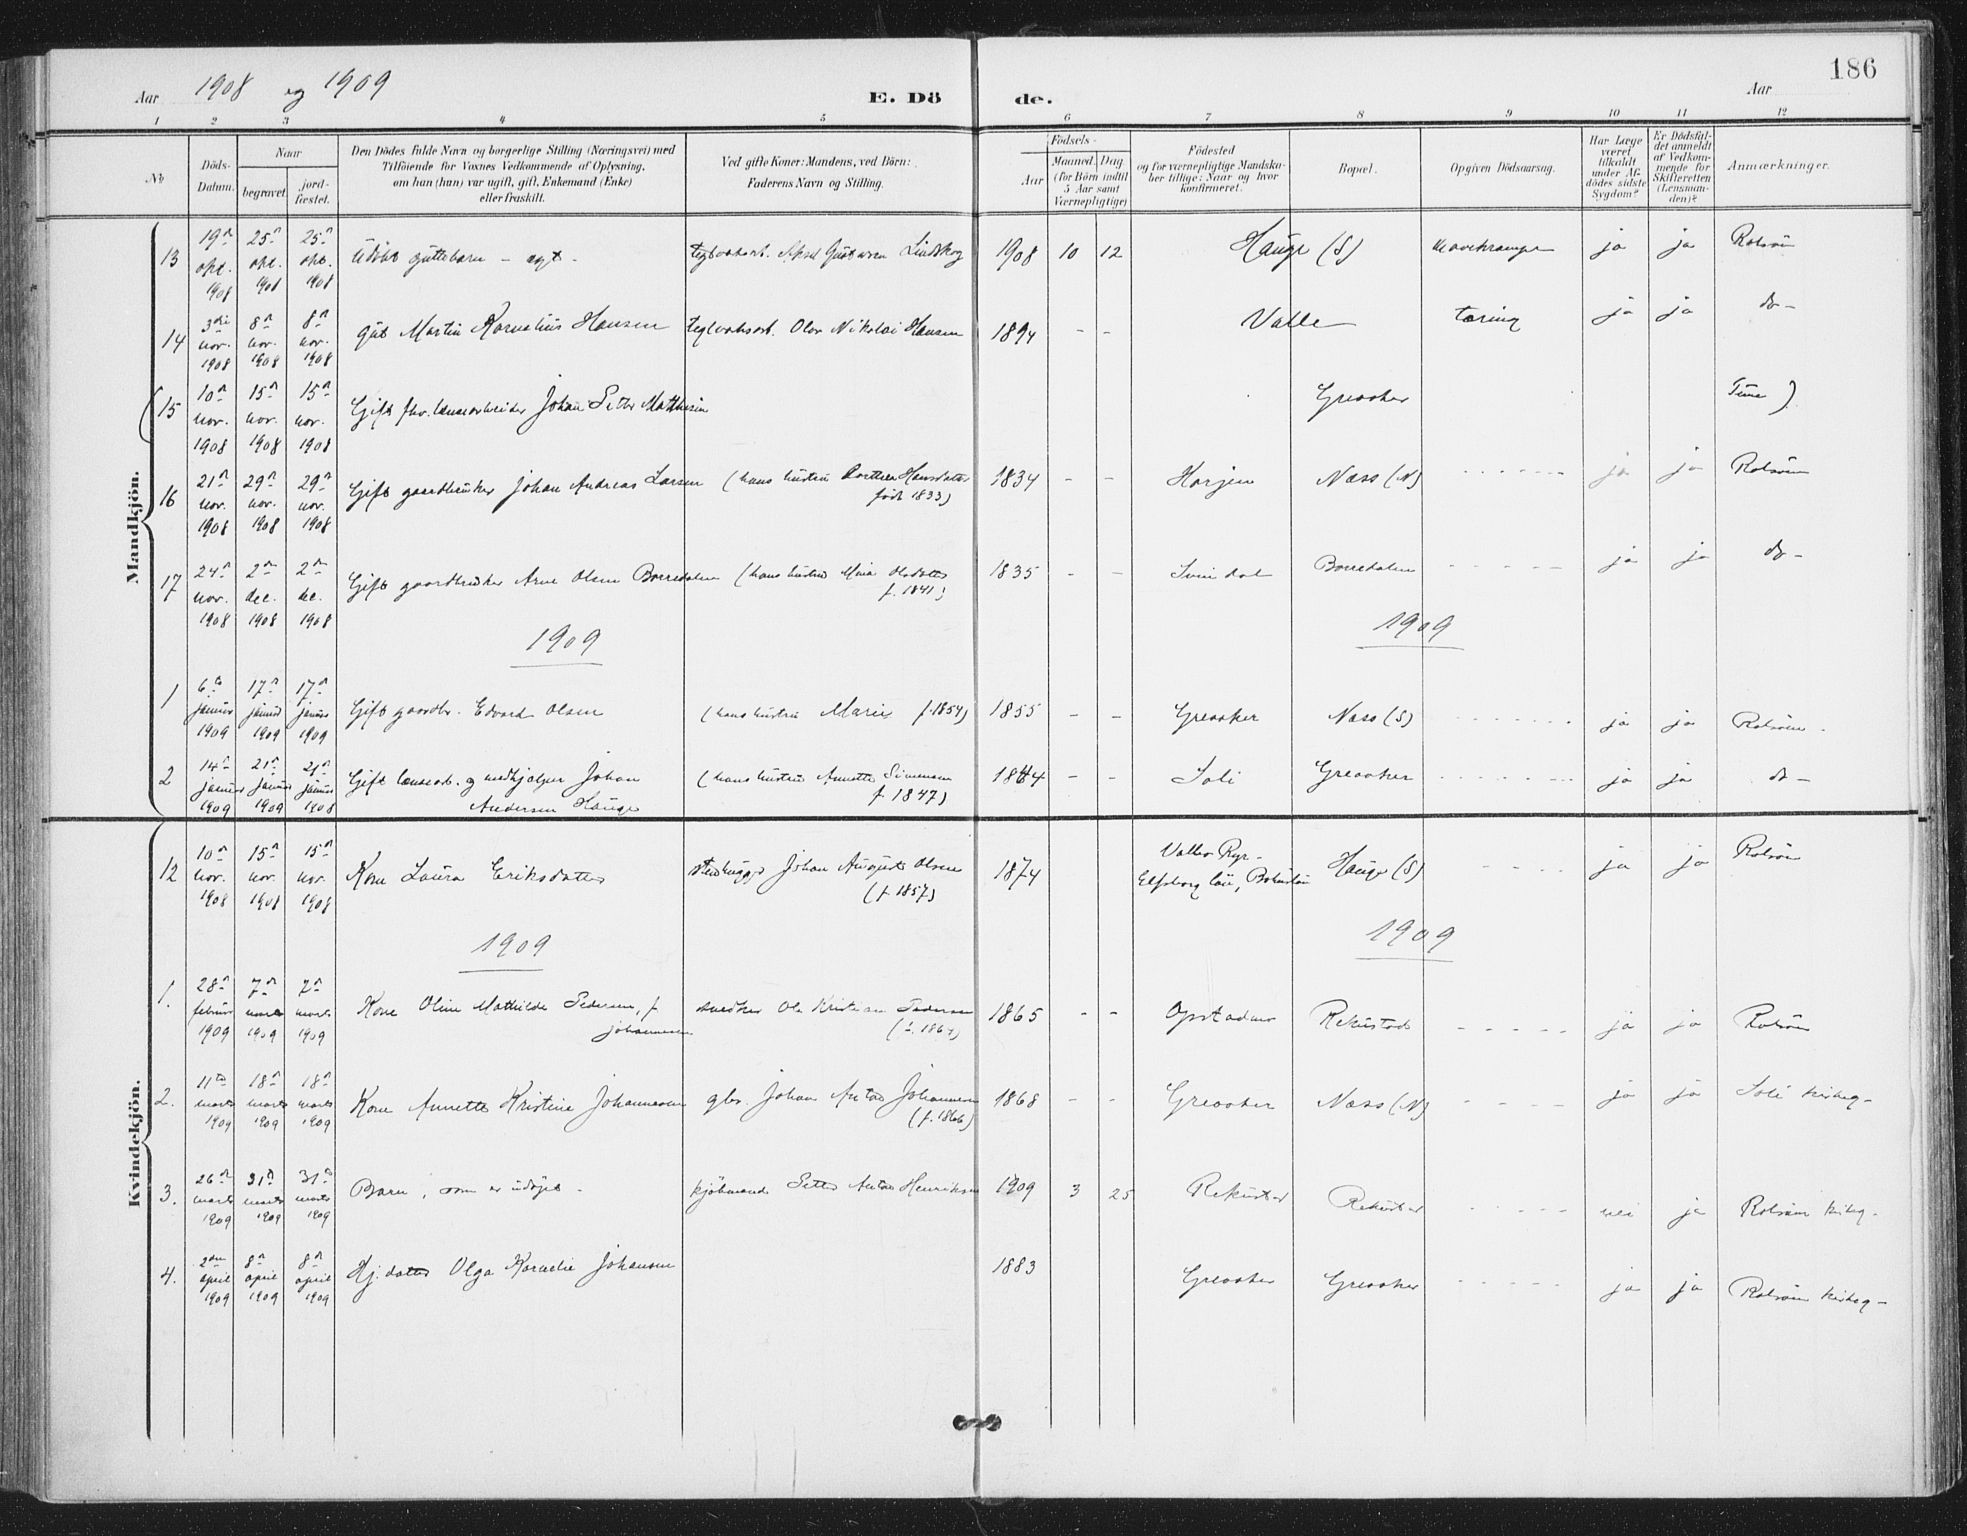 186
Aar 1908 og 1909
E. Döde.
Aar
1 2 3 4 5 6 7 8 9 10 11 12
No
Döds-Datum.
Naar
begravet.
jord-fæstet.
Den Dödes fulde Navn og borgerlige Stilling (Næringsvei) med
Tilföiende for Voxnes Vedkommende af Oplysning,
om han (hun) var ugift, gift, Enkemand (Enke)
eller fraskilt.
Ved gifte Koner: Mandens, ved Börn:
Faderens Navn og Stilling.
Födsels-
Aar
Maaned. Dag
(for Börn indtil
5 Aar samt
Værnepligtige)
Födested
og for værnepligtige Mandska-
ber tillige: Naar og hvor
konfirmeret.
Bopæl.
Opgiven Dödsaarsag.
Har Læge
været
tilkaldt
under Af-
dödes sidste
Sygdom?
Er Dödsfal-
det anmeldt
af Vedkom-
mende for
Skifteretten
(Lensman-
den)?
Anmærkninger.
Mandkjön.
13 19n okt. 1908 25n okt. 1908 25n okt. 1908 Udöbt guttebarn - egt - teglverksarb. Aksel Gustavsen Lindskog 1908 10 12 Hauge (S) ja ja Rolvsöe
14 3die nov. 1908 8n nov. 1908 8n nov. 1908 gut Martin Kornelius Hansen teglverksarb. Olav Nikolai Hansen 1894 - - Valle tæring ja ja do -
(15 10n nov. 1908 15n nov. 1908 15n nov. 1908 Gift fhv. lensearbeider Johan Petter Mathisen Greaaker Tune)
16 21n nov. 1908 29n nov. 1908 29n nov. 1908 Gift gaardbruker Johan Andreas Larsen (hans hustru Dorthea Hansdatter
född 1833) 1834 - - Næss (N) ja ja Rolvsöe
17 24n nov. 1908 2n dec. 1908 2n dec. 1908 Gift gaardbruker Arne Olsen Borredalen (hans hustru Mina Olsdatter
f. 1841) 1835 - - Svindal Borredalen ja ja do -
1909 1909
1 6te januar 1909 17n januar 1909 17n januar 1909 Gift gaardbr. Edvard Olsen (hans hustru Marie f. 1854) 1855 - - Greaaker Næss (S) ja ja Rolvsöe
2 14n januar 1909 21n januar 1909 21n januar 1908 Gift lensearb. og medhjælper Johan
Andersen Hauge (hans hustru Annette Simensen
f. 1847) 1844 - - Soli Greaaker ja ja do -
Kvindekjön.
12 10n nov. 1908 15n nov. 1908 15n nov. 1908 Kone Laura Eriksdatter stenhugger Johan August Olsen
(f. 1857) 1874 Valbo Ryr -
Elfsborg län, Hauge (S) ja ja Rolvsöe
1909 1909
1. 28n februar 1909 7n marts 1909 7n marts 1909 Kone Oline Mathilde Pedersen, f.
Johannesen snedker Ole Kristian Pedersen
(f. 1864) 1865 - - Opstad Rekustad ja ja Rolvsöe
2. 11te marts 1909 18n marts 1909 18n marts 1909 Kone Annette Kristine Johannesen gbr. Johan Anton Johannesen
(f. 1866) 1868 - - Greaaker Næss (N) ja ja Soli kirkeg -
3. 26n marts 1909 31n marts 1909 31n marts 1909 Barn, som er udöpt - kjöbmand Petter Anton Henriksen 1909 3 25 Rekustad Rekustad nei ja Rolvsöe kirkeg -
4. 2den april 1909 8n april 1909 8n april 1909 Hj. datter Olga Kornelie Johansen 1883 Greaaker Greaaker ja ja Rolvsöe kirkeg -